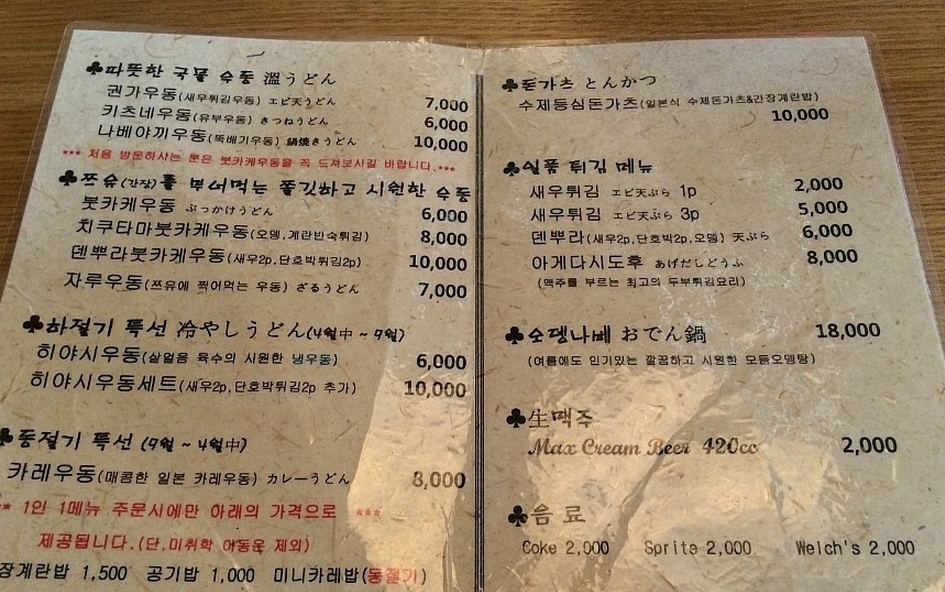 ♣따뜻한 국물 우동 溫うどん
권가우동(새우튀김우동) エビ天うどん 7,000
키츠네우동(유부우동) きつねうどん 6,000
나베야끼우동(뚝배기우동) 鍋焼きうどん 10,000
*** 처음 방문하시는 분은 붓카케우동을 꼭 드셔보시길 바랍니다.***
♣쯔유(간장)를 부어먹는 쫄깃하고 시원한 우동
붓카케우동 ぶっかけうどん 6,000
치쿠타마붓카케우동(오뎅,계란반숙튀김) 8,000
덴뿌라붓카케우동(새우2p,단호박튀김2p) 10,000
자루우동(쯔유에 찍어먹는 우동) ざるうどん 7,000
♣하절기 특선 冷やしうどん(4월中 ~ 9월)
히야시우동(살얼음 육수의 시원한 냉우동) 6,000
히야시우동세트(새우2p,단호박튀김2p 추가) 10,000
♣동절기 특선 (9월 ~ 4월中)
카레우동(매콤한 일본 카레우동) カレーうどん 8,000
** 1인 1메뉴 주문시에만 아래의 가격으로 ***
제공됩니다.(단,미취학 아동은 제외)
장계란밥 1,500 공기밥 1,000 미니카레밥(동절기)
♣돈가츠 とんかつ
수제등심돈가츠(일본식 수제돈가츠&간장계란밥)
10,000
♣일품 튀김 메뉴
새우튀김 エビ天ぷら 1p 2,000
새우튀김 エビ天ぷら 3p 5,000
덴뿌라(새우2p,단호박2p,오뎅) 天ぷら 6,000
아게다시도후 あげだしどうふ 8,000
(맥주를 부르는 최고의 두부튀김요리)
♣오뎅나베 おでん鍋 18,000
(여름에도 인기있는 깔끔하고 시원한 모듬오뎅탕)
♣生맥주
Max Cream Beer 420cc 2,000
♣음 료
Coke 2,000 Sprite 2,000 Welch's 2,000